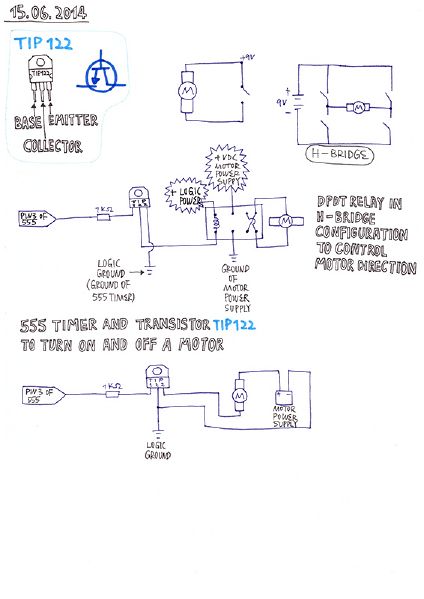 15.06.2014
TIP122
TIP122
BASE EMITTER
COLLECTOR
+9V
M
+
9V
-
M
H-BRIDGE
+VDC
MOTOR
POWER
SUPPLY
+ LOGIC
POWER
TIP
PIN3 OF
555
1KΩ
M
LOGIC
GROUND
(GROUND OF
555 TIMER)
GROUND
OF
MOTOR
POWER
SUPPLY
DPDT RELAY IN
H-BRIDGE
CONFIGURATION
TO CONTROL
MOTOR DIRECTION
555 TIMER AND TRANSISTOR TIP122
TO TURN ON AND OFF A MOTOR
PIN3 OF
555
1KΩ
TIP
122
M
MOTOR
POWER
SUPPLY
LOGIC
GROUND